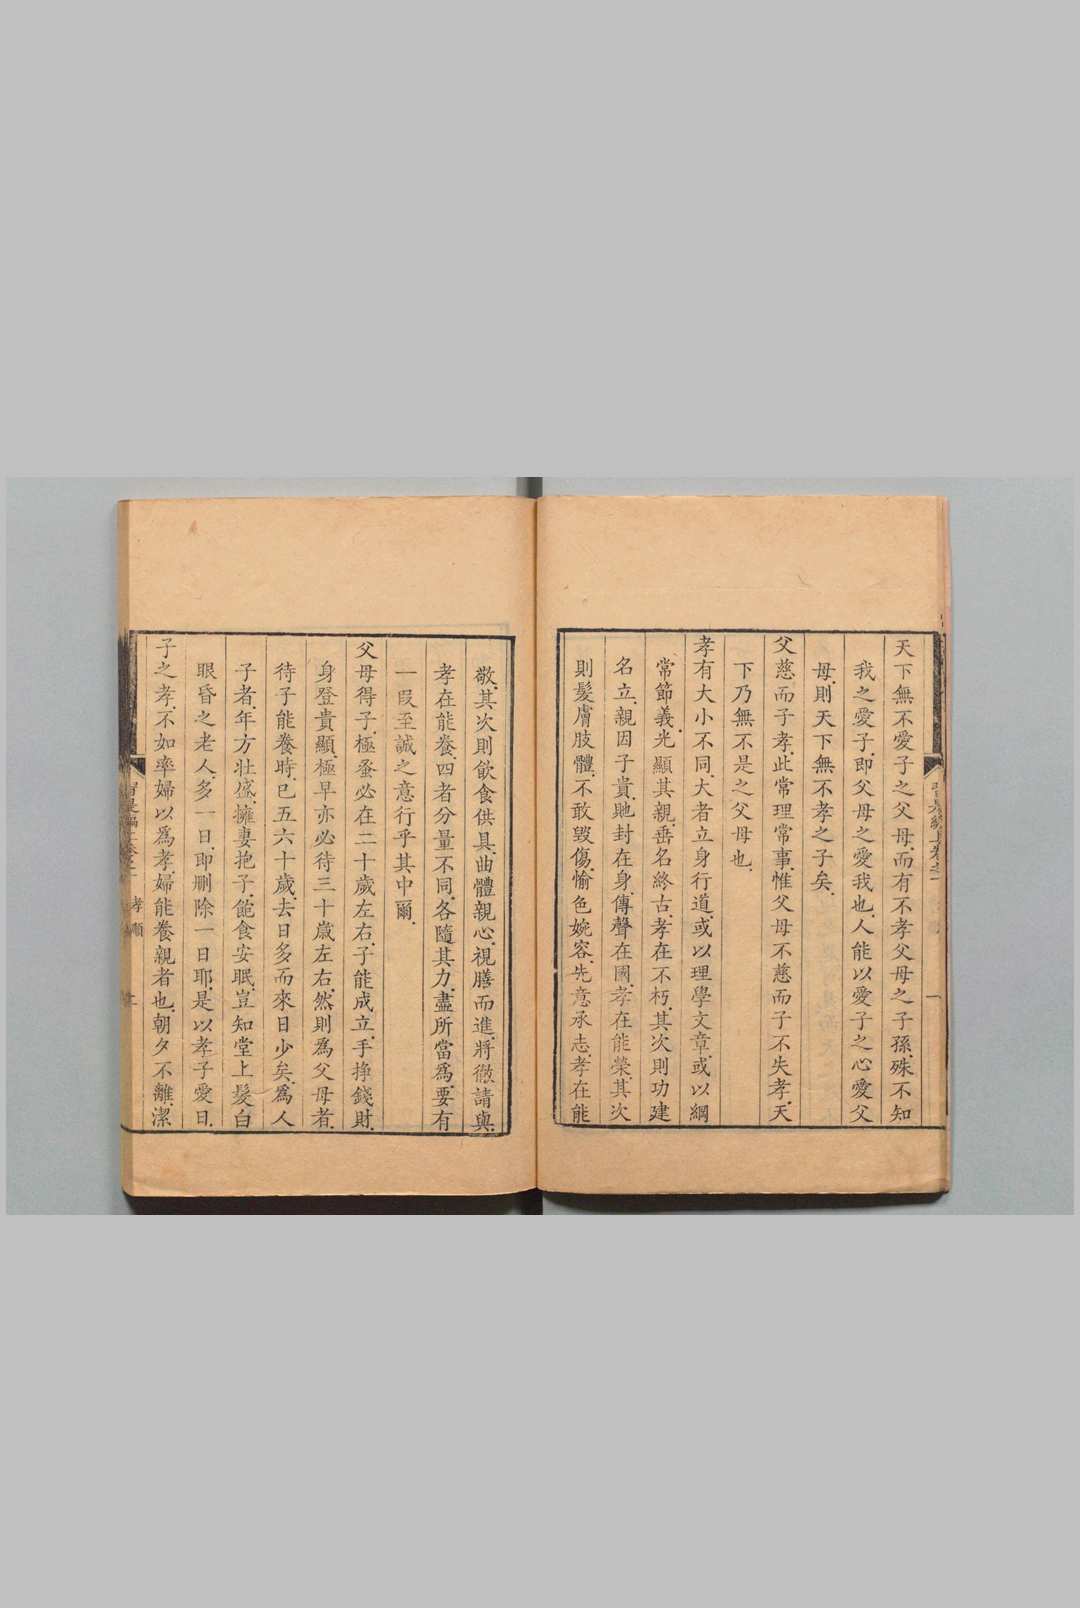 天下無不愛子之父母而有不孝父母之子孫殊不知
我之愛子即父母之愛我也人能以愛子之心愛父
母則天下無不孝之子矣
父慈而子孝此常理常事惟父母不慈而子不失孝天
下乃無不是之父母也
孝有大小不同大者立身行道或以理學文章或以綱
常節義光顯其親垂名終古孝在不朽其次則功建
名立親因子貴貤封在身傳聲在國孝在能榮其次
則髮膚肢體不敢毀傷愉色婉容先意承志孝在能
敬其次則飲食供具曲體親心視膳而進將徹請與
孝在能養四者分量不同各隨其力盡所當為要有
一段至誠之意行乎其中爾
父母得子極蚤必在二十歲左右子能成立手掙錢財
身登貴顯極早亦必待三十歲左右然則為父母者
待子能養時已五六十歲去日多而來日少矣為人
子者年方壯盛擁妻抱子飽食安眠豈知堂上髮白
眼昏之老人多一日即刪除一日耶是以孝子愛日
子之孝不如率婦以為孝婦能養親者也朝夕不離潔
孝順